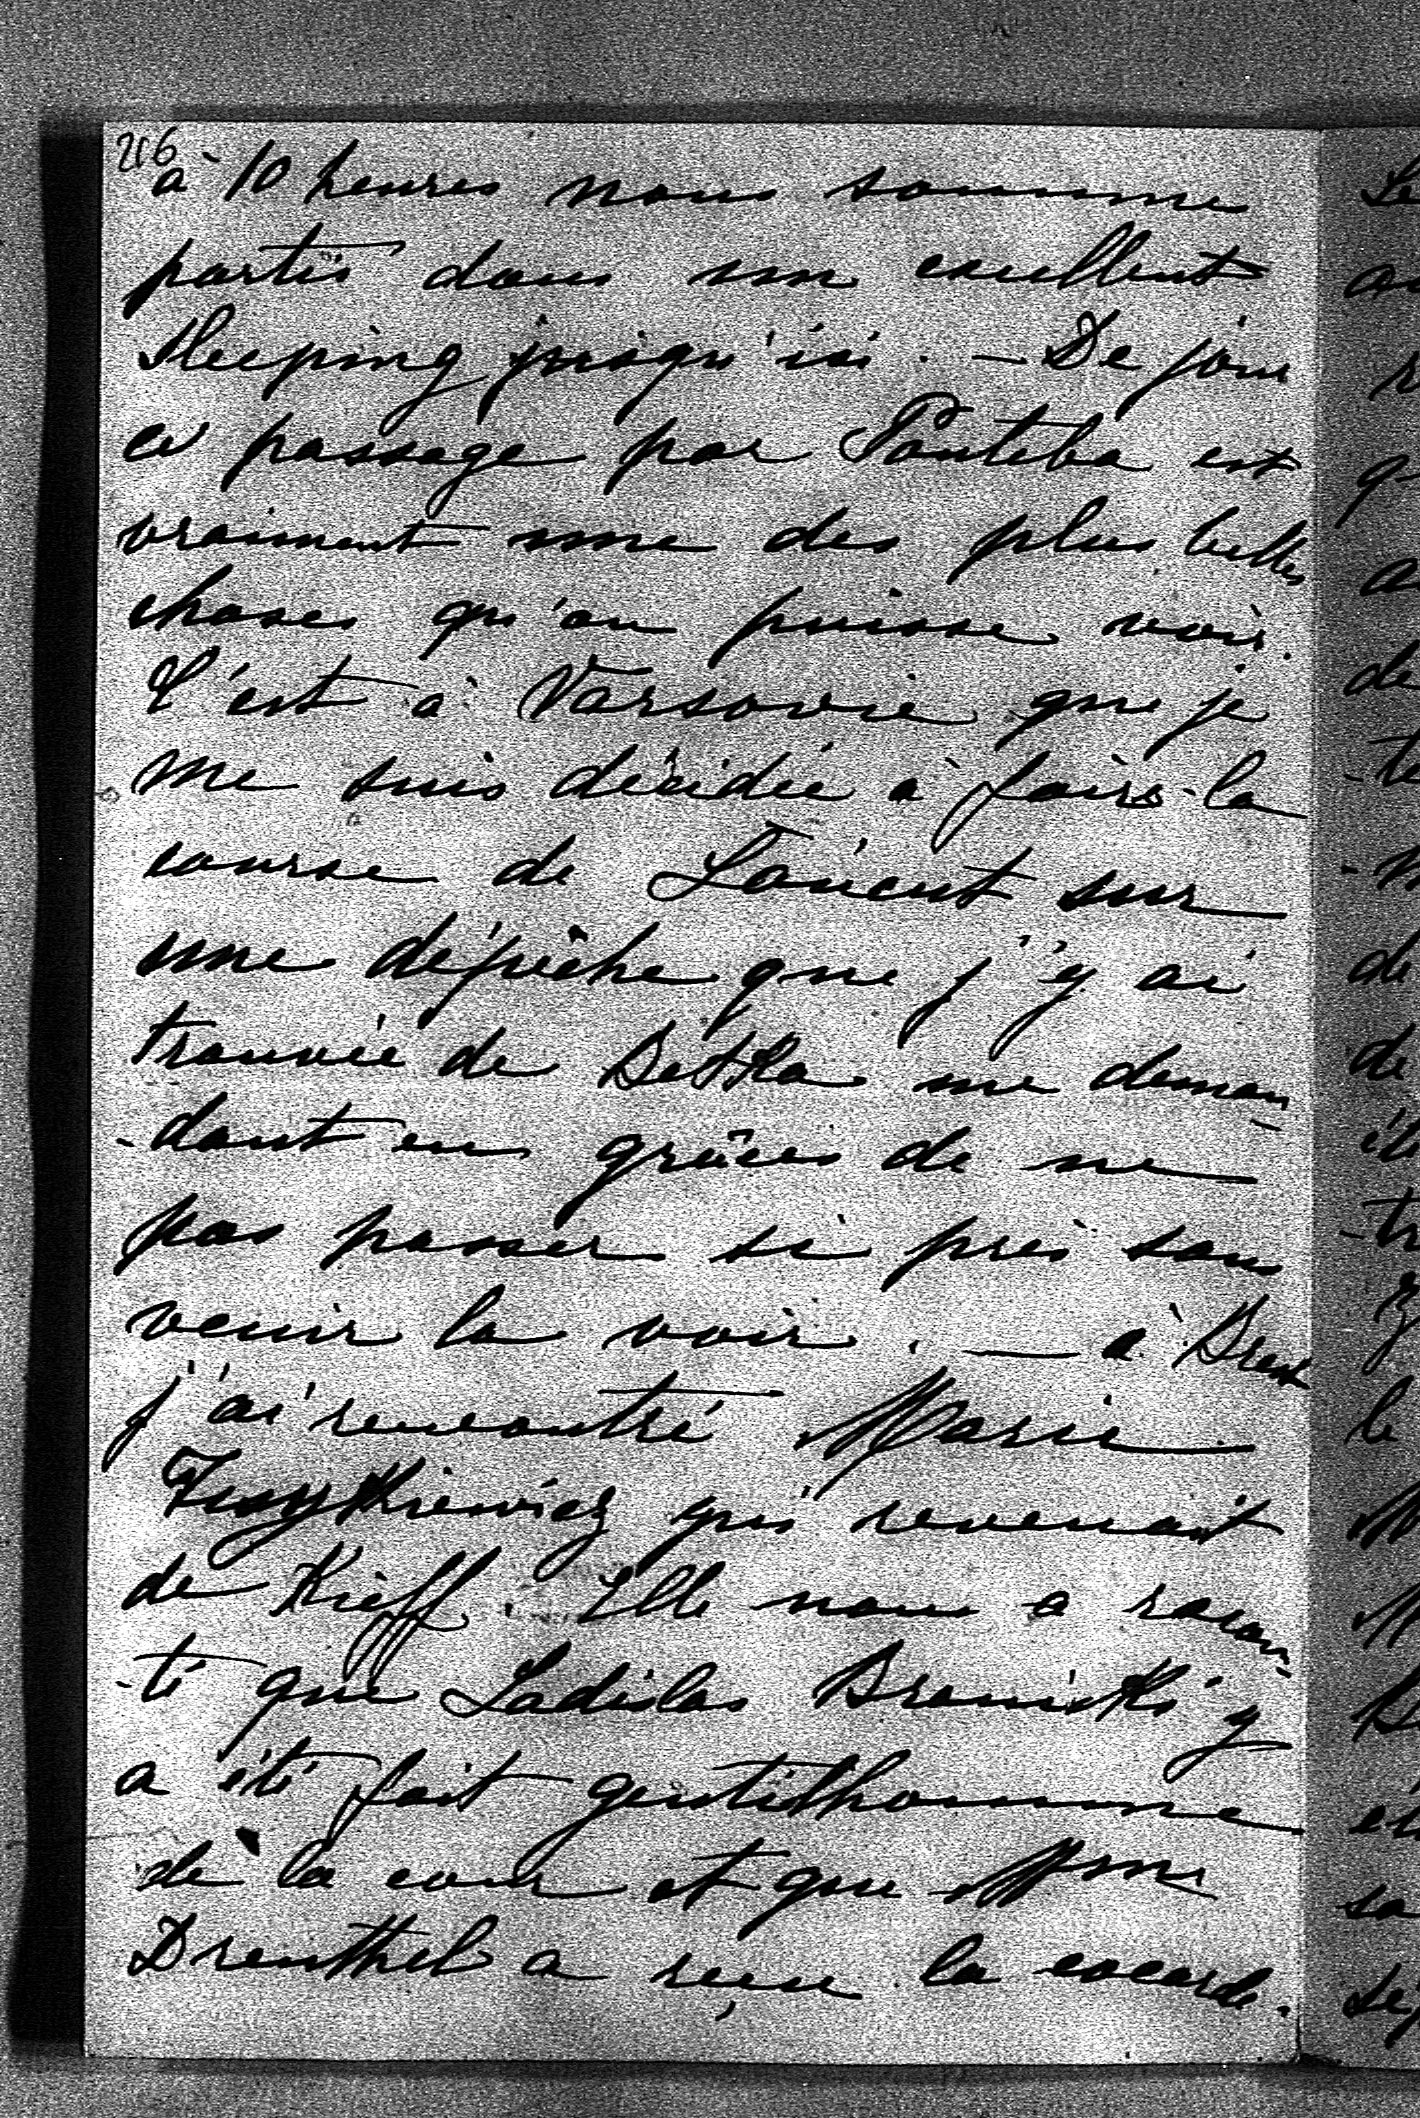 216
à 10 heures nous sommes
partis dans un excellent
sleeping jusqu'ici. — De jour
ce passage par Ponteba est
vraiment une des plus belles
choses qu'on puisse voir.
C'est à Varsovie que je
me suis décidée à faire la
course de Lancut sur
une dépêche que j'y ai
trouvée de Betka me deman-
-dant en grâces de ne
pas passer si près sans
venir la voir. — à Brest
j'ai rencontré Marie
Tyszkiewicz qui revenait
de Kieff. Elle nous a racon-
-té que Ladislas Branicki y
a été fait gentilhomme
de la cour et que Mme
Drenthel a reçu la cocarde.